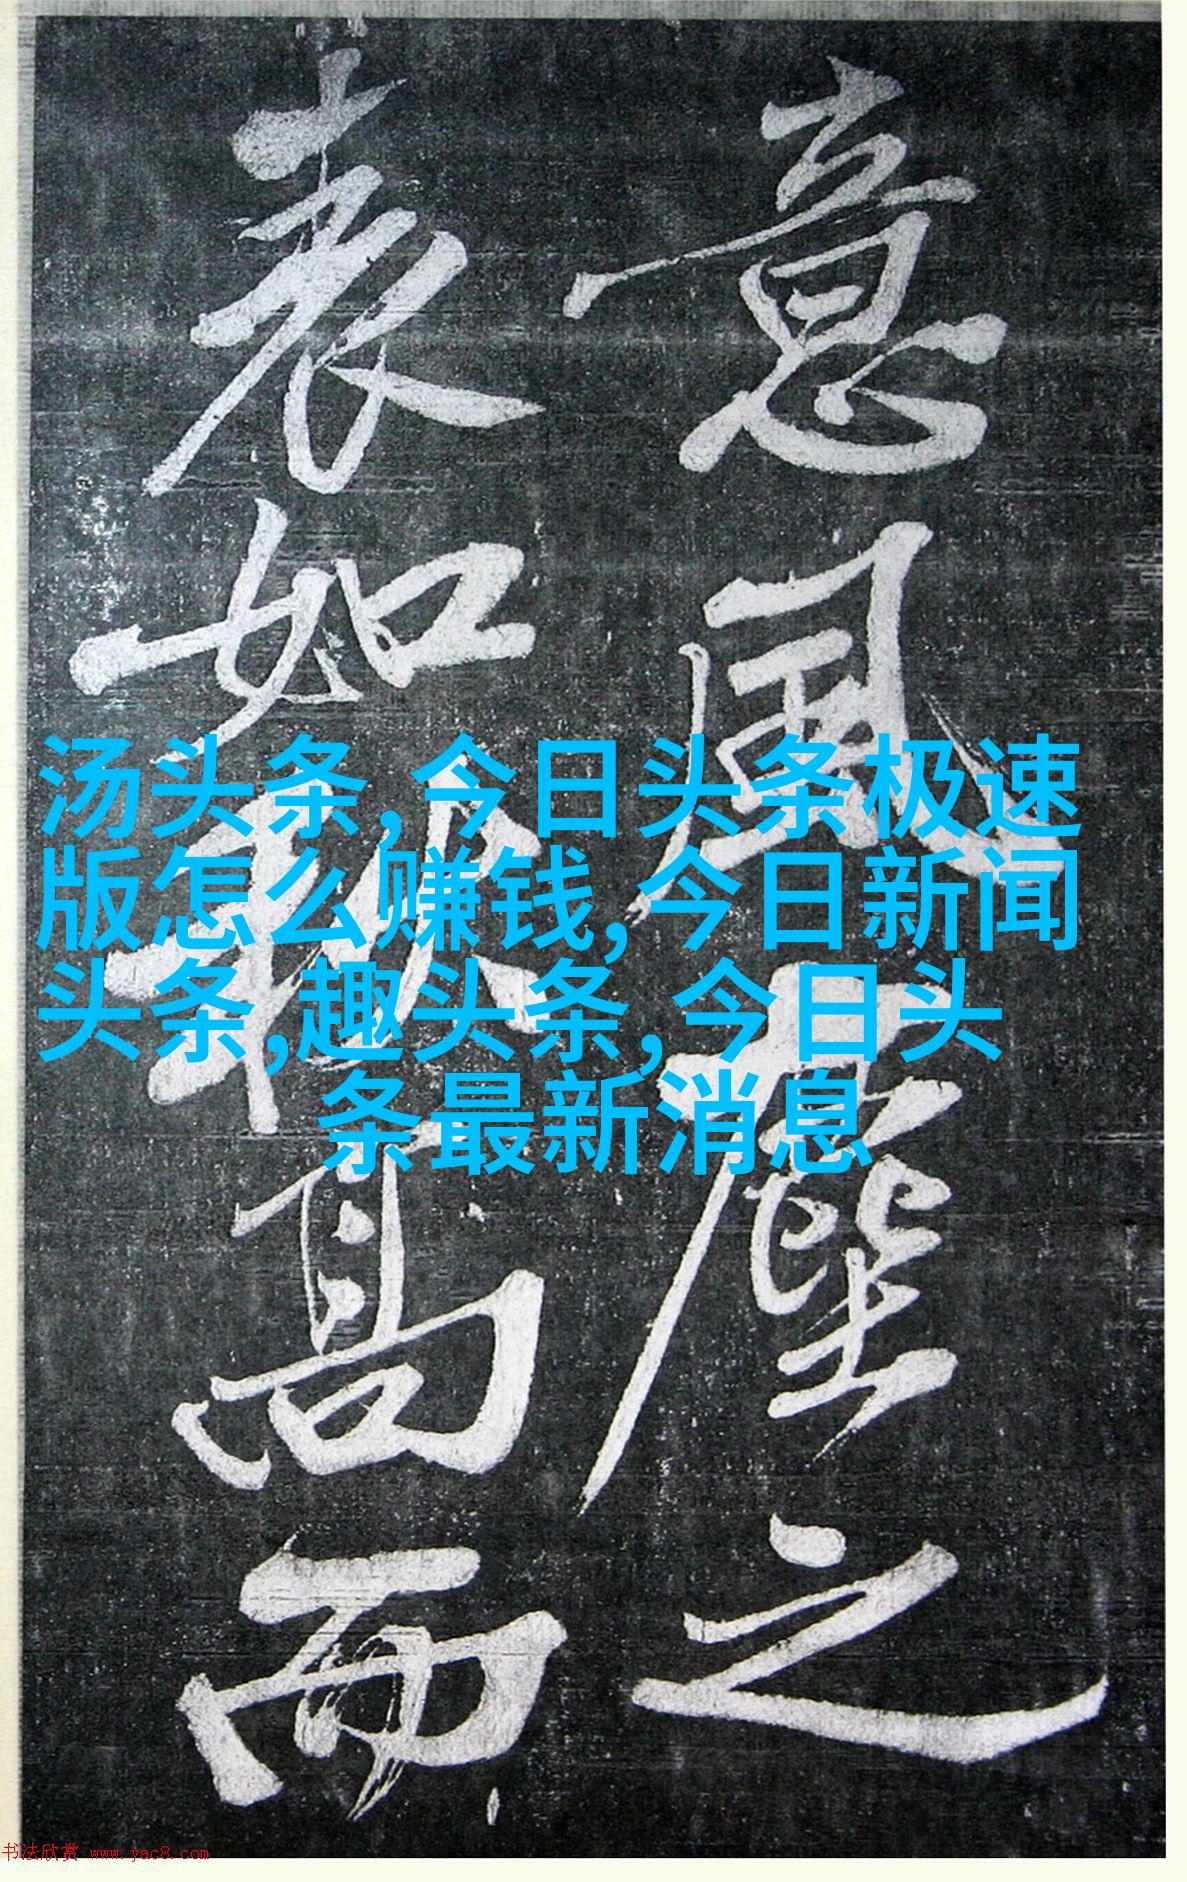 意風塵之
表如高而
汤头条,今日头条极速
版怎么赚钱,今日新闻
头条,趣头条,今日头
条最新消息
书法欣赏 www.yac8.com